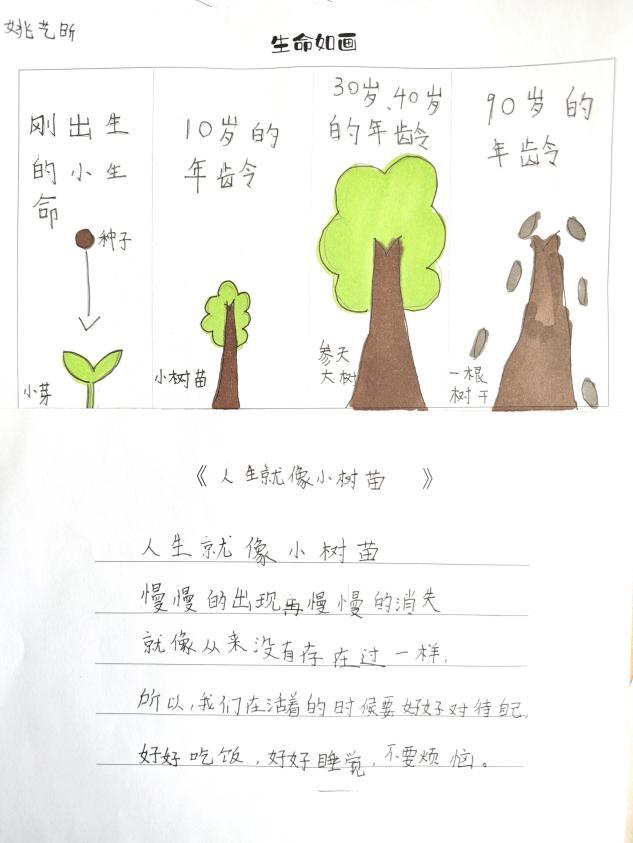 姚艺昕
生命如画
刚出生
的小生
命
种子
小芽
10岁的
年龄
小树苗
30岁、40岁
的年龄
参天
大树
90岁的
年龄
一根
树干
《人生就像小树苗》
人生就像小树苗
慢慢的出现再慢慢的消失
就像从来没有存在过一样,
所以,我们在活着的时候要好好对待自己,
好好吃饭,好好睡觉,不要烦恼。